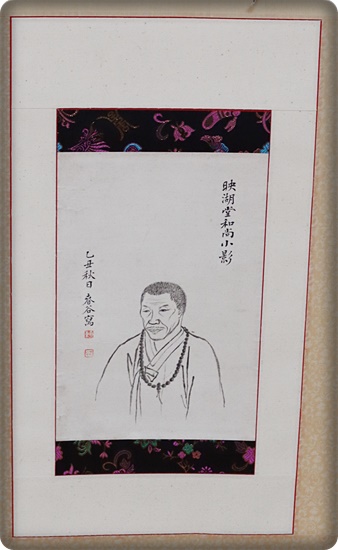 映湖堂和尚小影
乙丑秋日 春谷寫